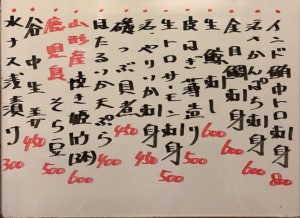 インド鮪中トロ刺身 800
えさかんぱち刺身 600
金目鯛刺し 600
生鯨刺し 600
皮はぎ薄造り
生トロサーモン刺身 500
えやりいか刺身 450
磯つぶ貝煮 450
ほたるいか天ぷら 400
山形産焼き姫竹(3本) 600
鹿児島そら豆 500
谷中生姜 450
水ナス浅漬り 300